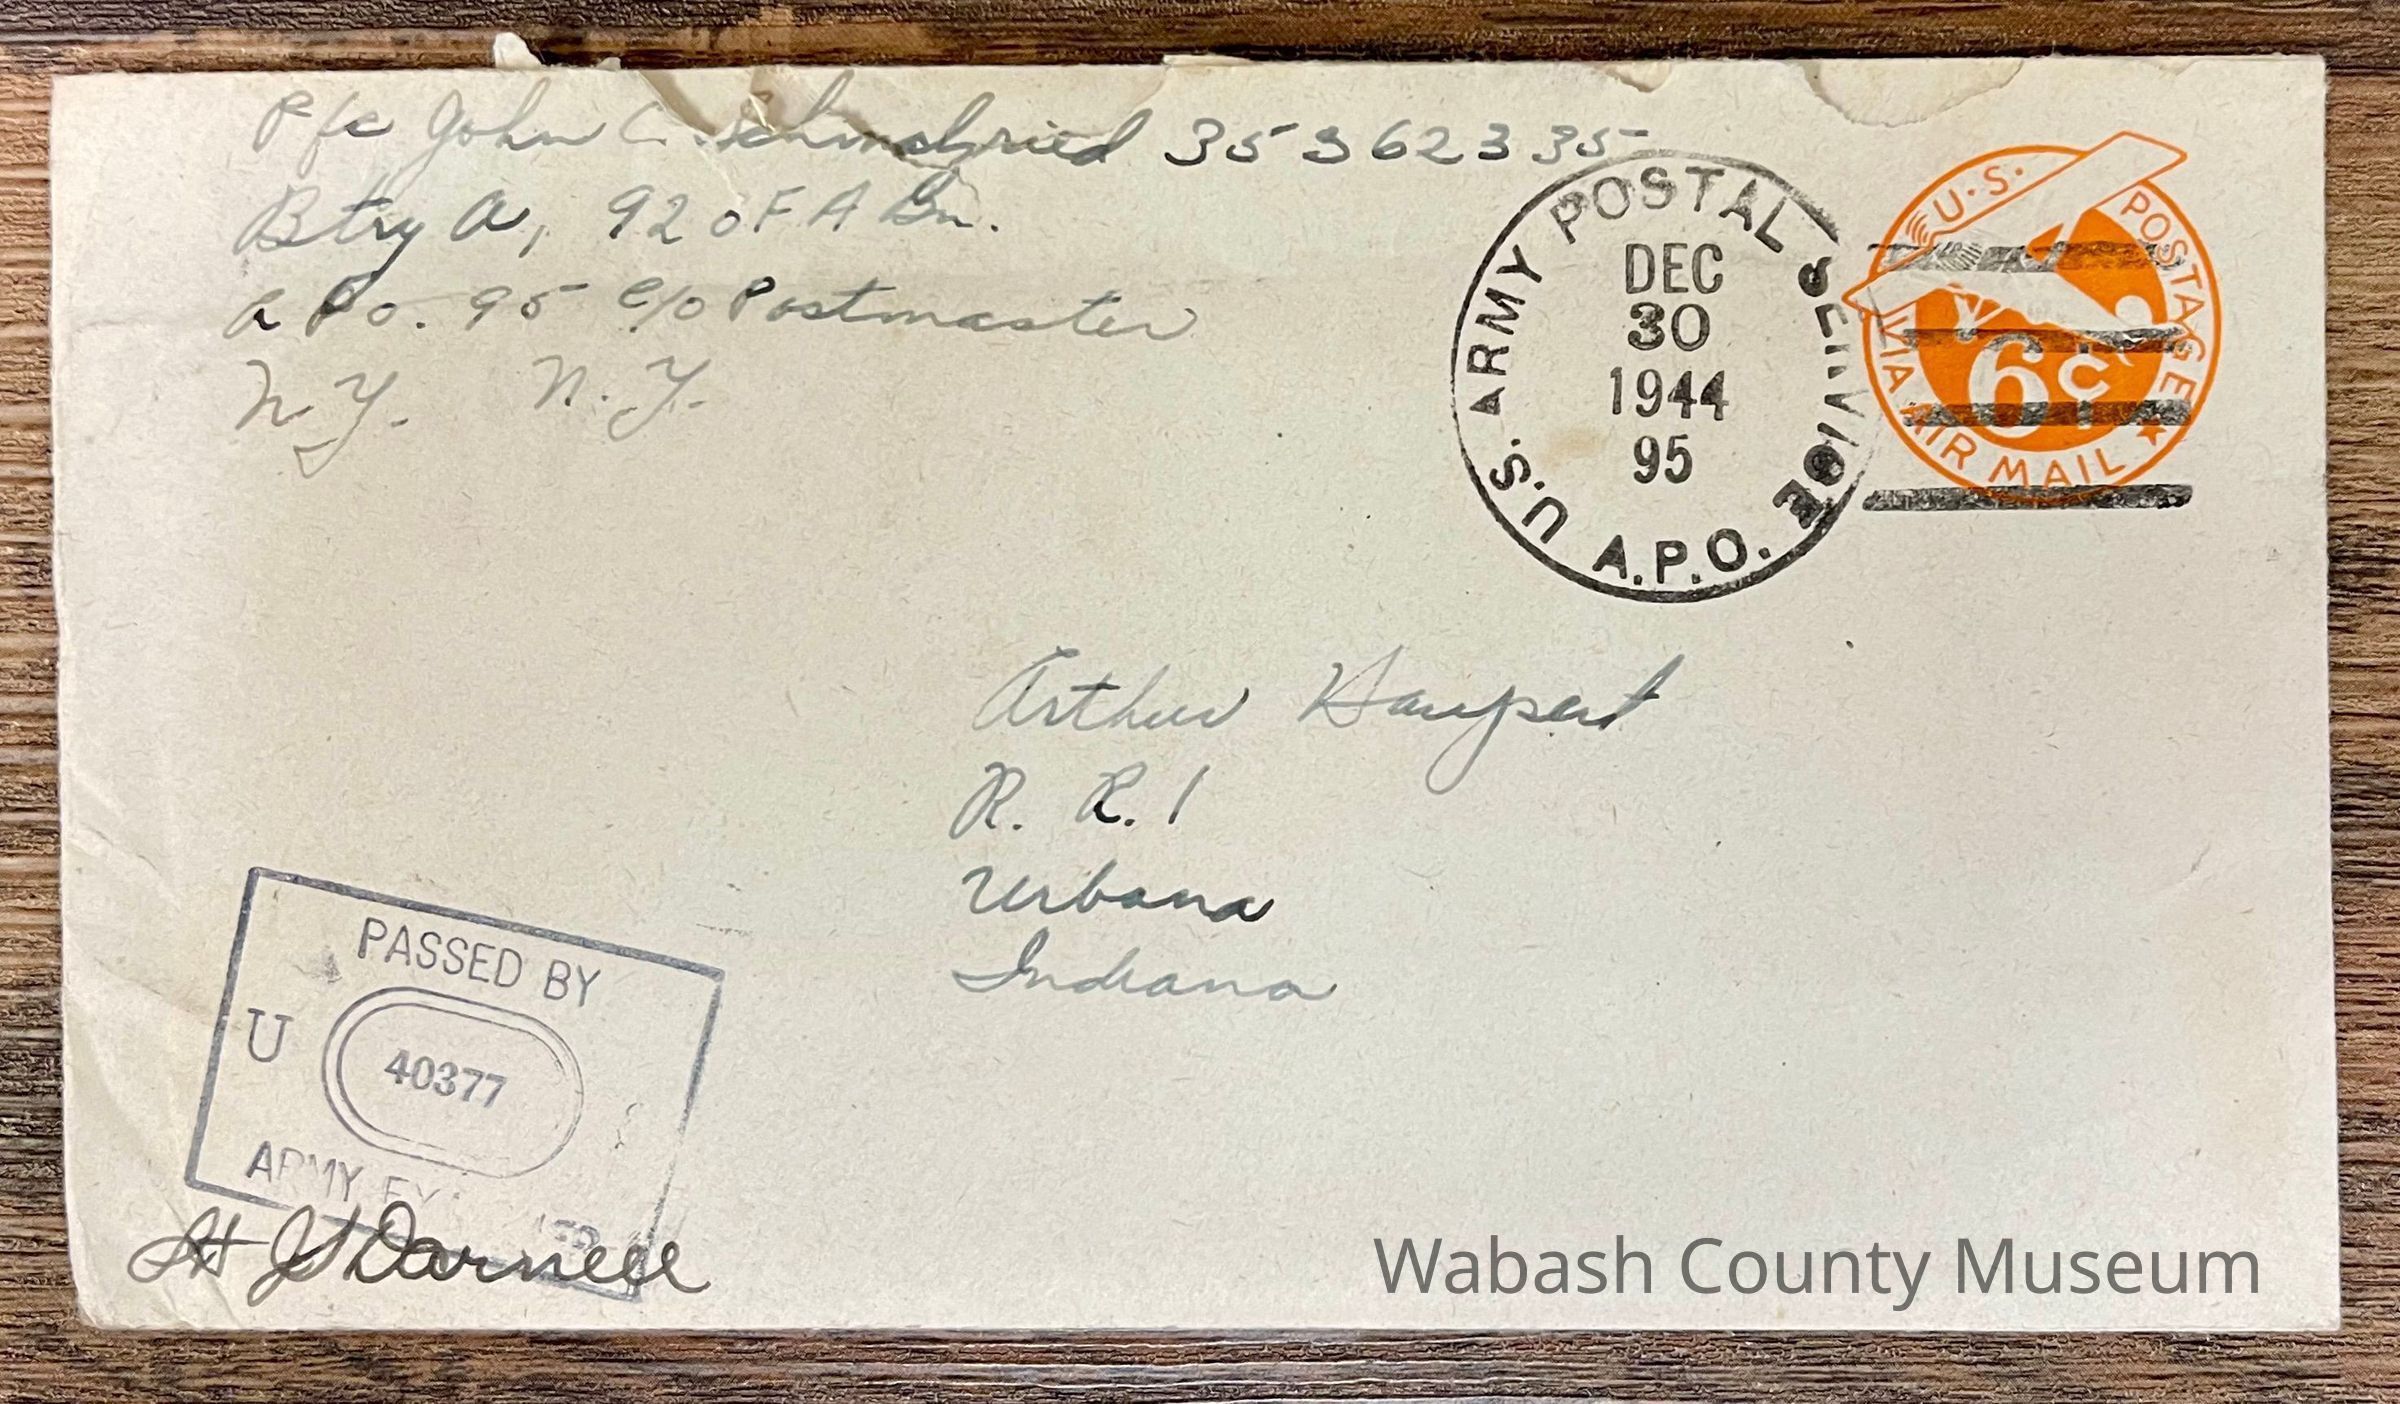 Pfc John C. Schmalzried 35362335
Btry A, 920 F A Bn.
A P O. 95 c/o Postmaster
N.Y. N.Y.
U.S. ARMY POSTAL SERVICE
A.P.O.
DEC
30
1944
95
U.S. POSTAGE
6¢
VIA AIR MAIL
Arthur Haupert
R. R. 1
Urbana
Indiana
PASSED BY
U
40377
ARMY
Darnell
Wabash County Museum